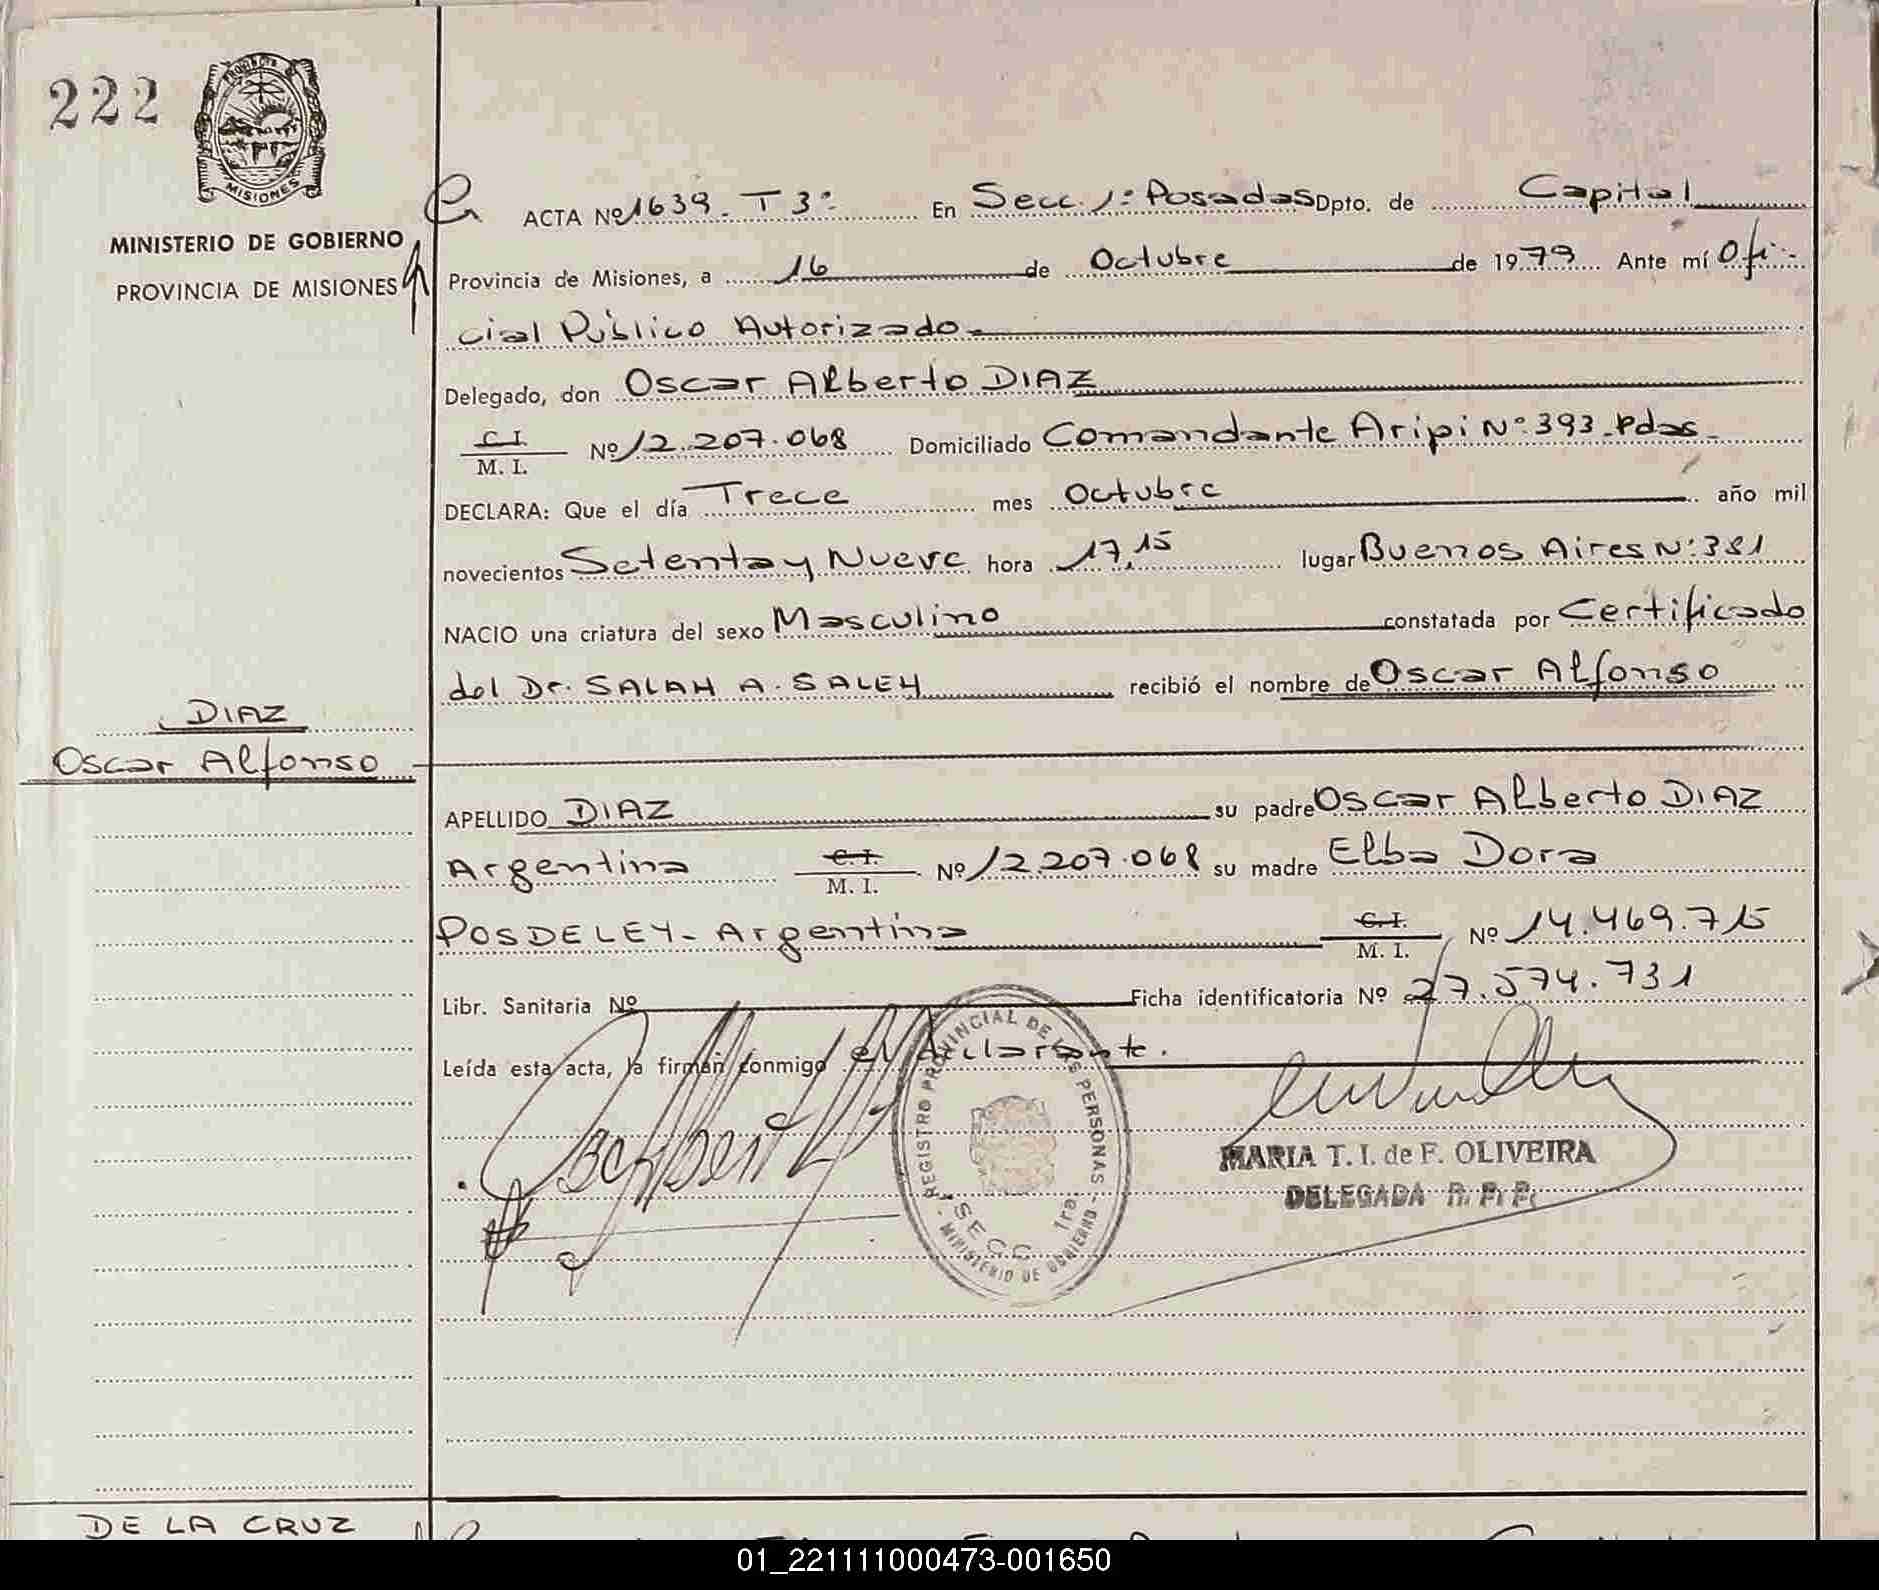 222
PROVINCIA DE
MISIONES
MINISTERIO DE GOBIERNO
PROVINCIA DE MISIONES
ACTA Nº 1639. T 3º En Secc. 1º Posadas Dpto. de Capital
Provincia de Misiones, a 16 de Octubre de 1979 Ante mí Ofi-
cial Público Autorizado.
Delegado, don Oscar Alberto DIAZ
C. I.
M. I. Nº 12.207.068 Domiciliado Comandante Aripi Nº 393 Pdas-
DECLARA: Que el día Trece mes Octubre año mil
novecientos Setenta y Nueve hora 17,15 lugar Buenos Aires Nº 381
NACIO una criatura del sexo Masculino constatada por Certificado
del Dr. SALAH A. SALEH recibió el nombre de Oscar Alfonso
DIAZ
Oscar Alfonso
APELLIDO DIAZ su padre Oscar Alberto DIAZ
Argentina C. I. M. I. Nº 12.207.068 su madre Elba Dora
POSDELEY - Argentina C. I. M. I. Nº 14.469.715
Libr. Sanitaria Nº Ficha identificatoria Nº 27.574.731
Leída esta acta, la firman conmigo el declarante.
REGISTRO PROVINCIAL DE LAS PERSONAS - MINISTERIO DE GOBIERNO -
SECC 1ra
MARIA T. I. de F. OLIVEIRA
DELEGADA R. P. P.
DE LA CRUZ
01_221111000473-001650